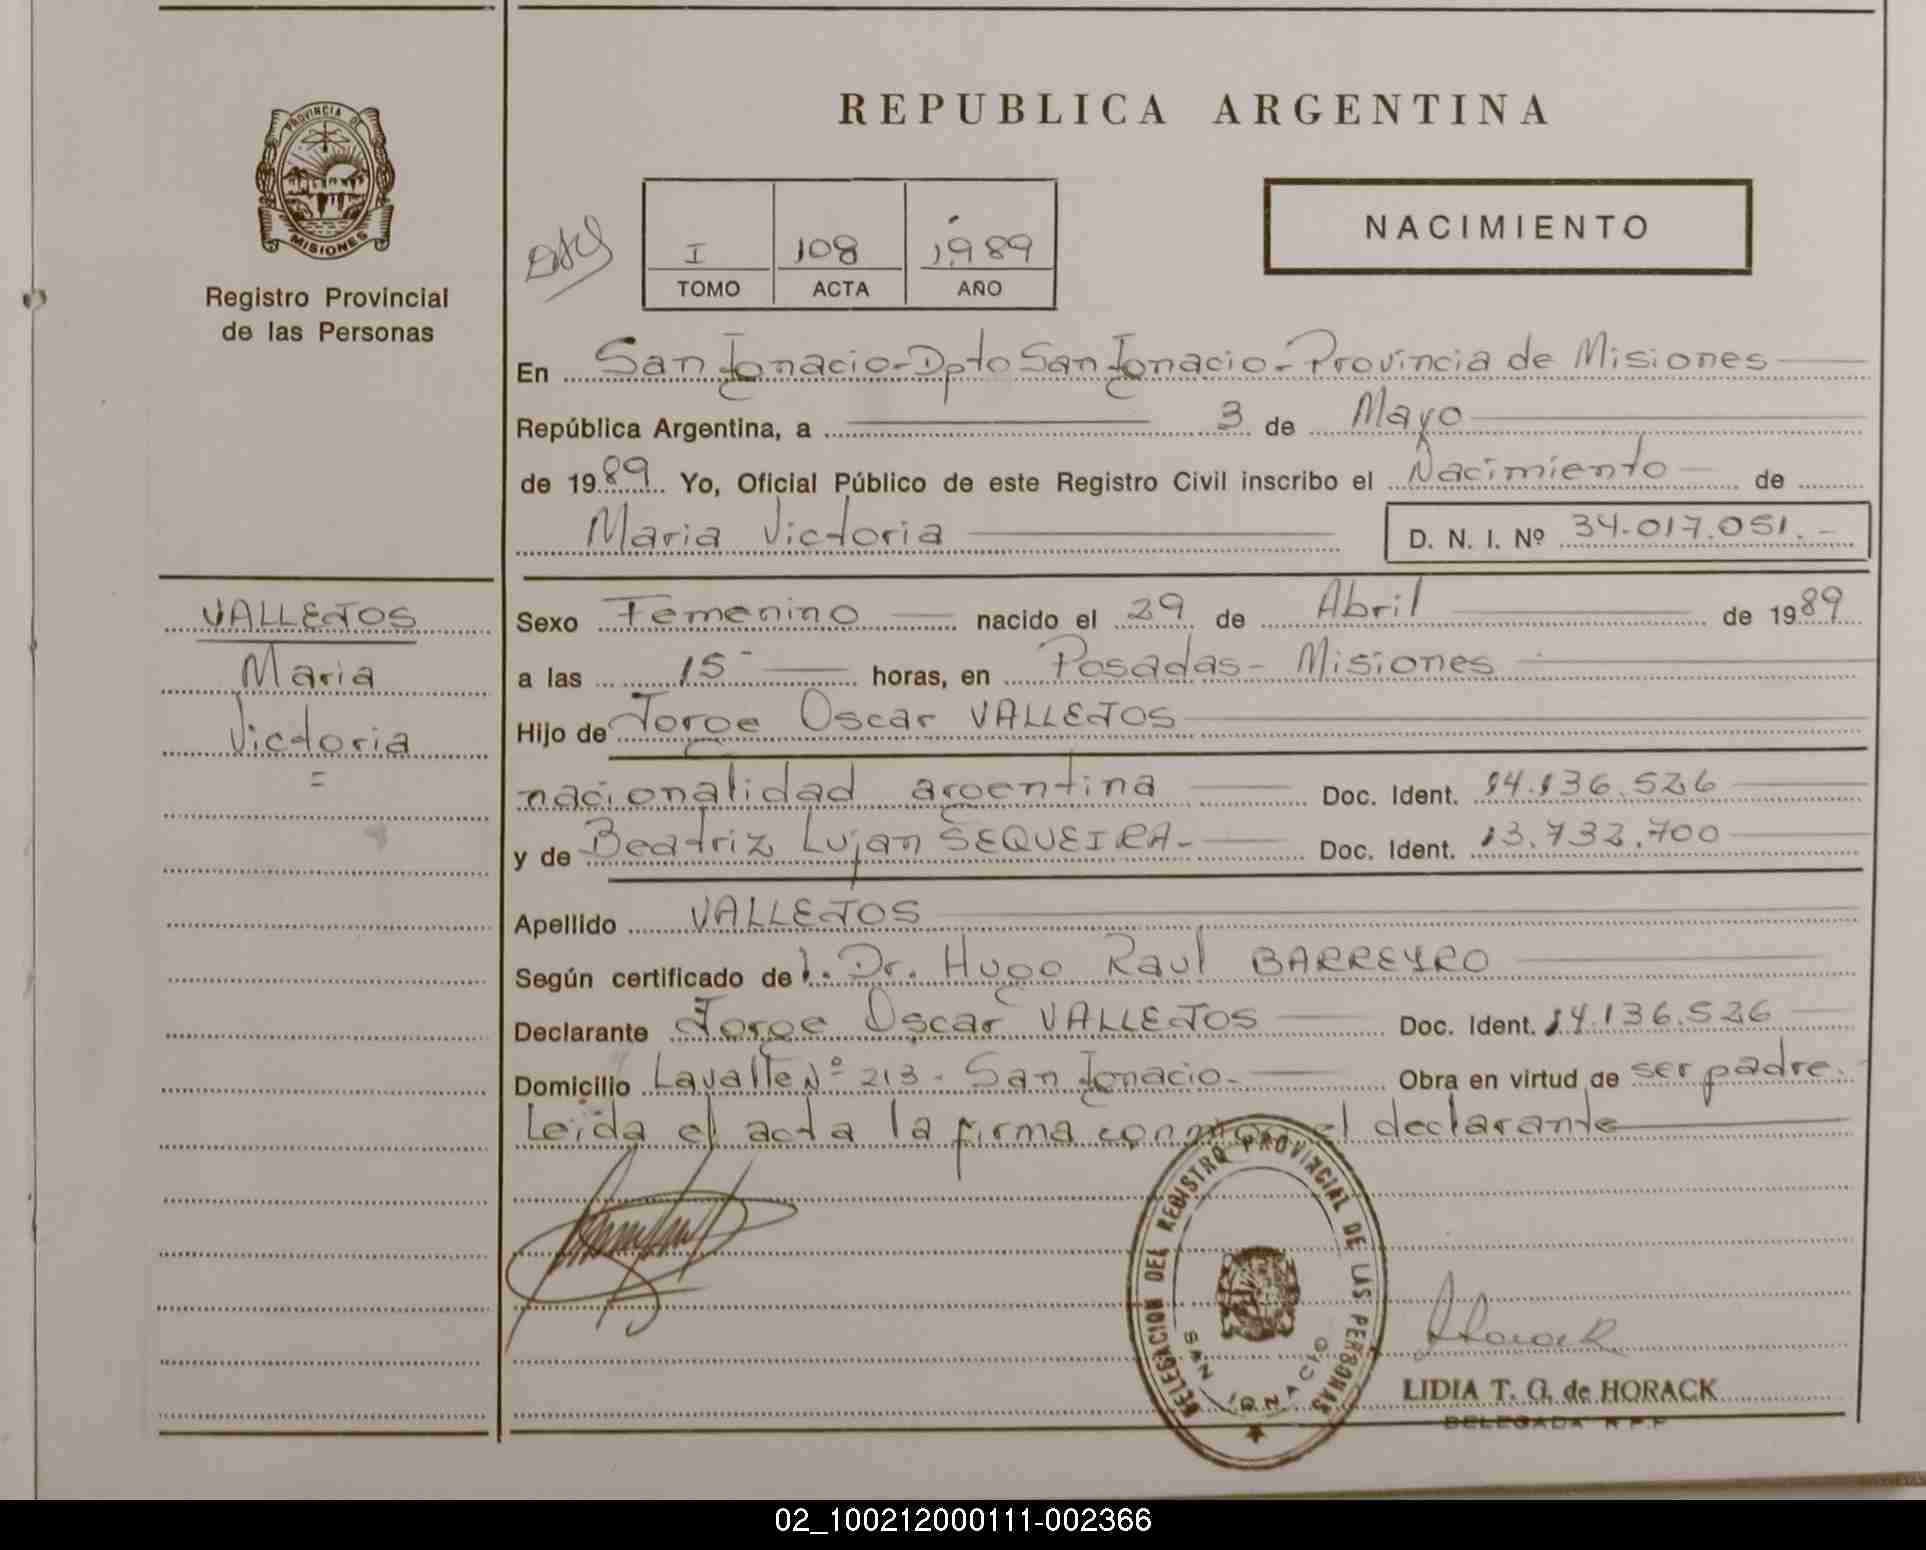 PROVINCIA DE
MISIONES
Registro Provincial
de las Personas
REPUBLICA ARGENTINA
NACIMIENTO
I 108 1989
TOMO ACTA AÑO
En San Ignacio - Dpto San Ignacio - Provincia de Misiones
República Argentina, a 3 de Mayo
de 1989 Yo, Oficial Público de este Registro Civil inscribo el Nacimiento de
Maria Victoria D. N. I. Nº 34.017.051.-
VALLEJOS
Maria
Victoria
=
Sexo Femenino nacido el 29 de Abril de 1989
a las 15 horas, en Posadas - Misiones
Hijo de Jorge Oscar VALLEJOS
nacionalidad argentina Doc. Ident. 14.136.526
y de Beatriz Lujan SEQUEIRA.- Doc. Ident. 13.732.700
Apellido VALLEJOS
Según certificado de l. Dr. Hugo Raul BARREYRO
Declarante Jorge Oscar VALLEJOS Doc. Ident. 14.136.526
Domicilio Lavalle Nº 213 - San Ignacio.- Obra en virtud de ser padre.
Leida el acta la firma conmigo el declarante
DELEGACION DEL REGISTRO PROVINCIAL DE LAS PERSONAS
SAN IGNACIO
LIDIA T. G. de HORACK
DELEGADA R.P.P
02_100212000111-002366